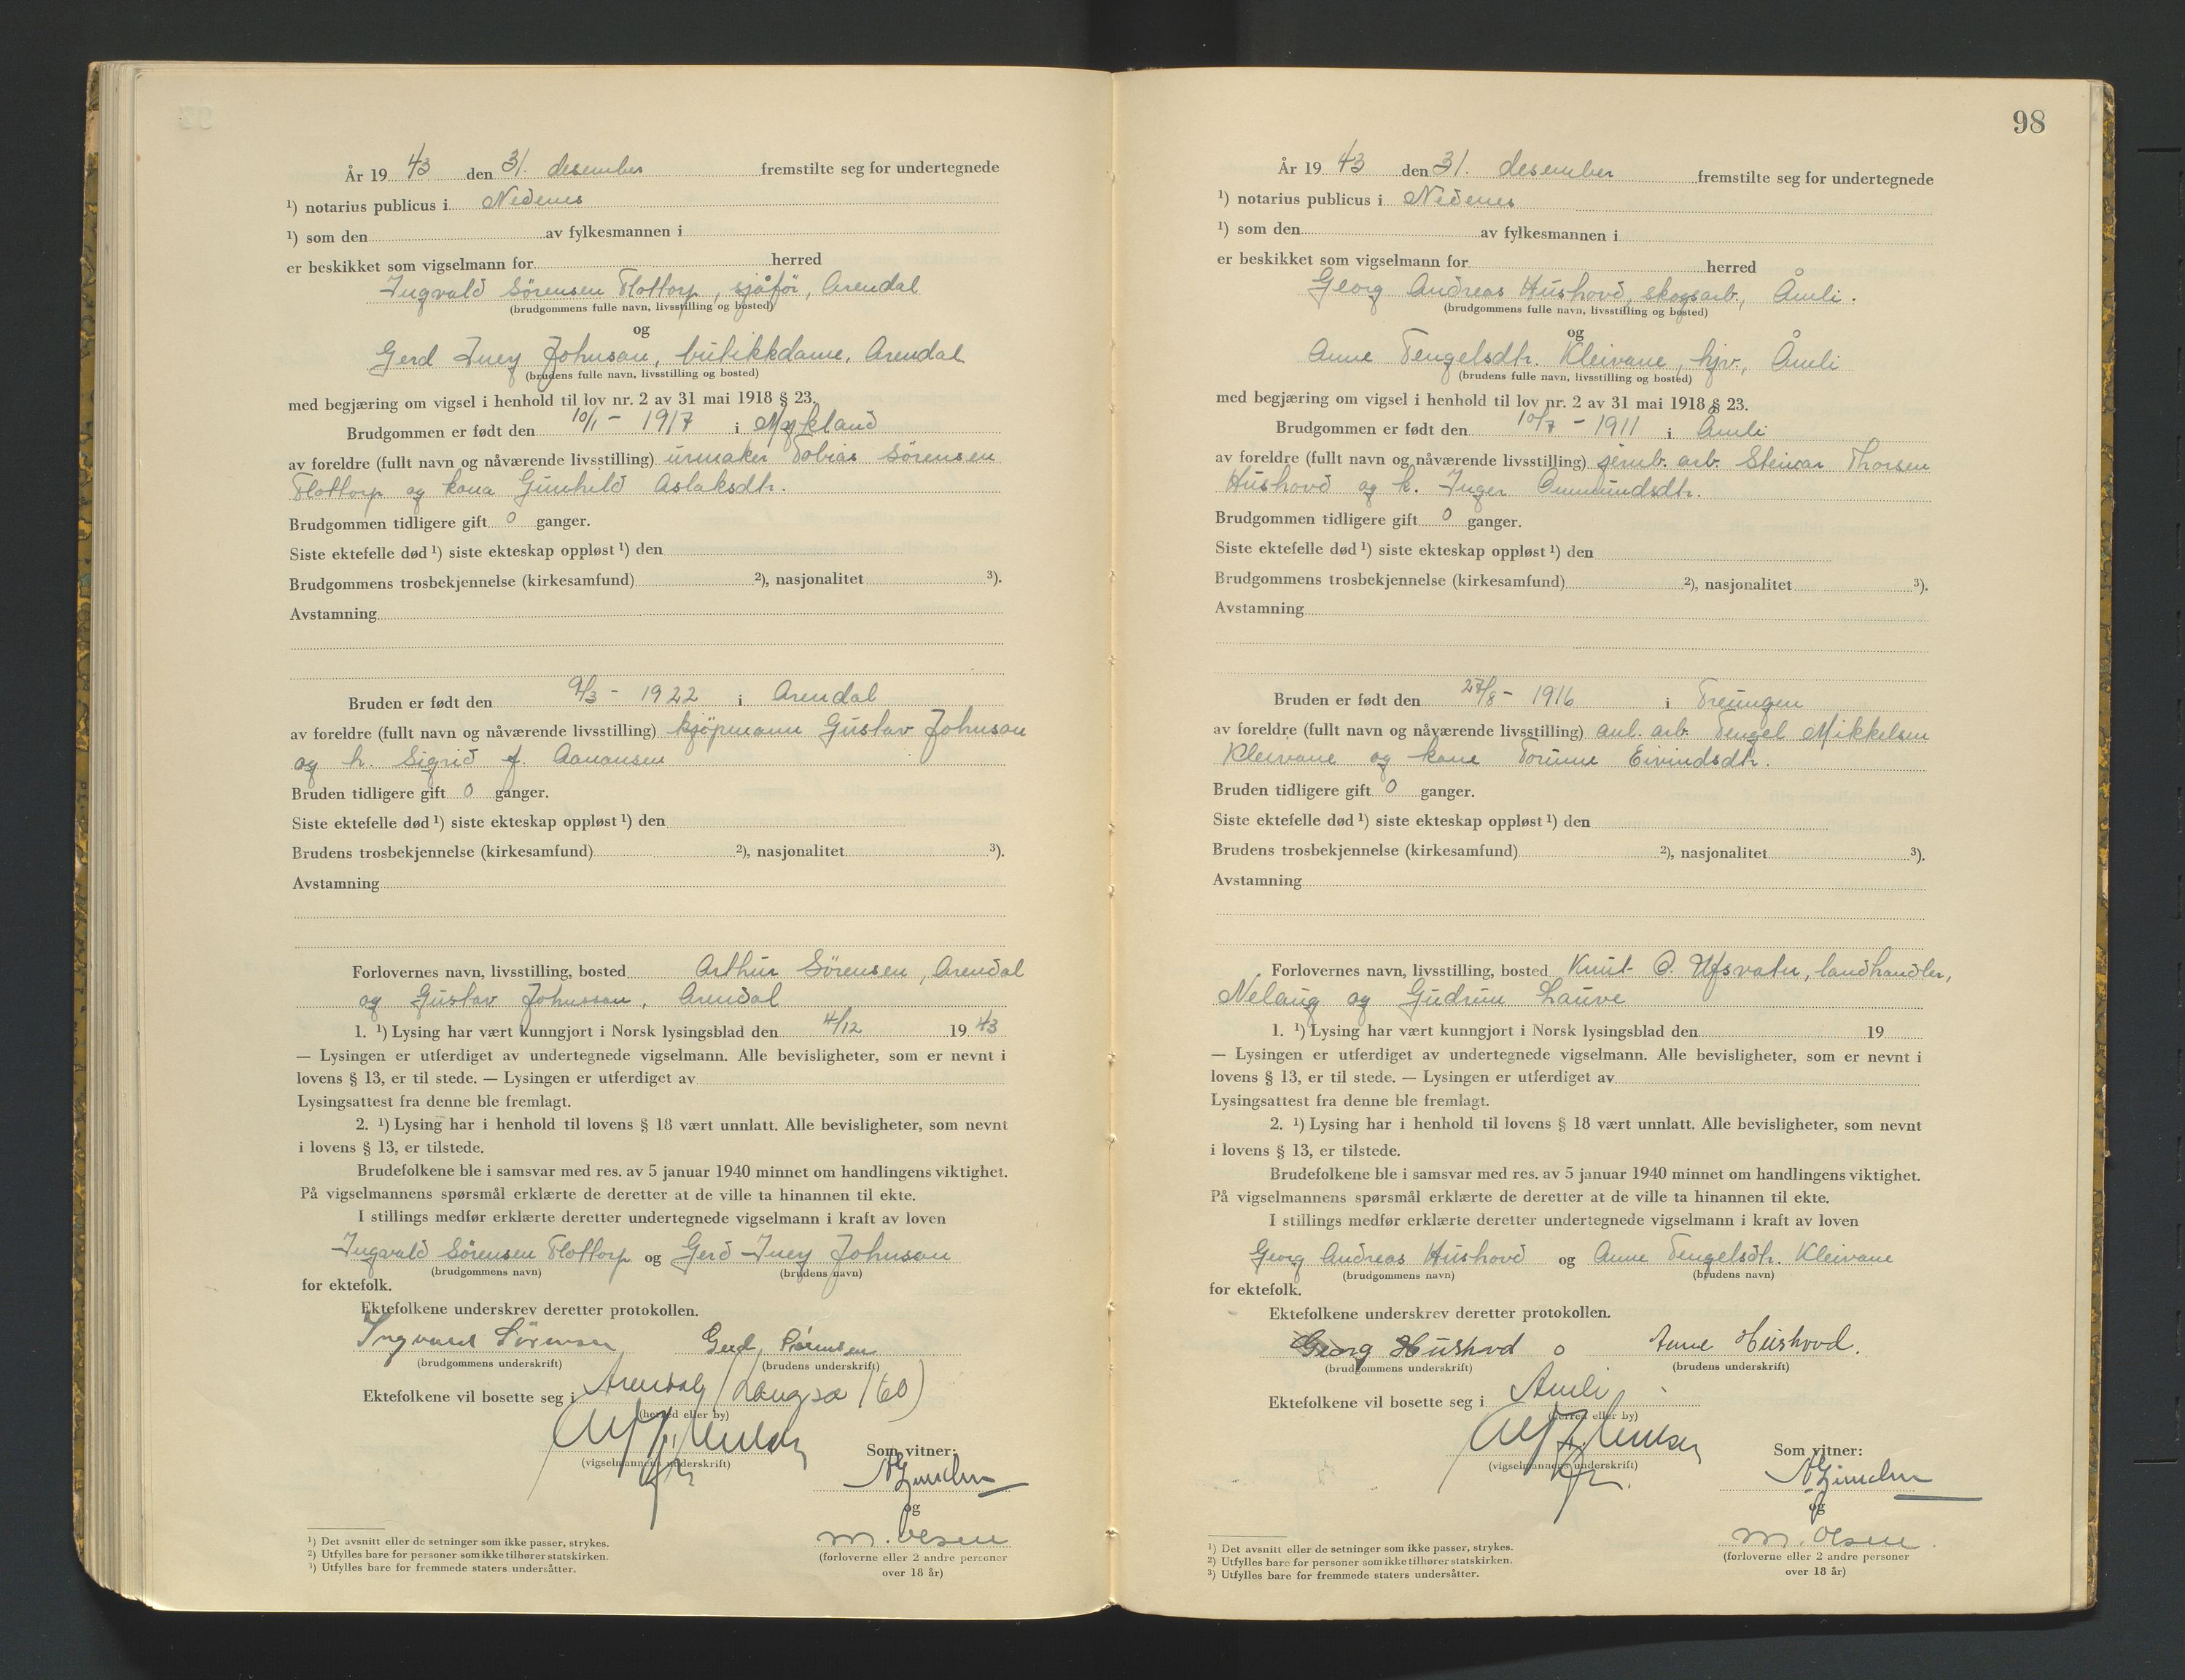 År 19 43 den 31. desember fremstilte seg for undertegnede
¹) notarius publicus i Nedenes
¹) som den av fylkesmannen i
er beskikket som vigselmann for herred
Ingvald Sørensen Flottorp, sjåfør, Arendal
(brudgommens fulle navn, livsstilling og bosted)
og
Gerd Iney Johnson, butikkdame, Arendal
(brudens fulle navn, livsstilling og bosted)
med begjæring om vigsel i henhold til lov nr. 2 av 31 mai 1918 § 23.
Brudgommen er født den 10/1 - 1917 i Mykland
av foreldre (fullt navn og nåværende livsstilling) urmaker Tobias Sörensen
Flottorp og kona Gunhild Aslaksdtr.
Brudgommen tidligere gift 0 ganger.
Siste ektefelle død ¹) siste ekteskap oppløst ¹) den
Brudgommens trosbekjennelse (kirkesamfund) ²), nasjonalitet ³).
Avstamning
Bruden er født den 9/3 - 1922 i Arendal
av foreldre (fullt navn og nåværende livsstilling) kjøpmann Gustav Johnson
og h. Sigrid f. Aanonsen
Bruden tidligere gift 0 ganger.
Siste ektefelle død ¹) siste ekteskap oppløst ¹) den
Brudens trosbekjennelse (kirkesamfund) ²), nasjonalitet ³).
Avstamning
Forlovernes navn, livsstilling, bosted Arthur Sörensen, Arendal
og Gustav Johnson, Arendal
1. ¹) Lysing har vært kunngjort i Norsk lysingsblad den 4/12 19 43
— Lysingen er utferdiget av undertegnede vigselmann. Alle bevisligheter, som er nevnt i
lovens § 13, er til stede. — Lysingen er utferdiget av
Lysingsattest fra denne ble fremlagt.
2. ¹) Lysing har i henhold til lovens § 18 vært unnlatt. Alle bevisligheter, som nevnt
i lovens § 13, er tilstede.
Brudefolkene ble i samsvar med res. av 5 januar 1940 minnet om handlingens viktighet.
På vigselmannens spørsmål erklærte de deretter at de ville ta hinannen til ekte.
I stillings medfør erklærte deretter undertegnede vigselmann i kraft av loven
Ingvald Sörensen Flottorp og Gerd Iney Johnson
(brudgommens navn) (brudens navn)
for ektefolk.
Ektefolkene underskrev deretter protokollen.
Ingvald Sörensen Gerd Sörensen
(brudgommens underskrift) (brudens underskrift)
Ektefolkene vil bosette seg i Arendal (Langsæ 160)
(herred eller by)
(vigselmannens underskrift)
Som vitner:
og
M. Olsen
(forloverne eller 2 andre personer
over 18 år)
¹) Det avsnitt eller de setninger som ikke passer, strykes.
²) Utfylles bare for personer som ikke tilhører statskirken.
³) Utfylles bare for fremmede staters undersåtter.
98
År 19 43 den 31. desember fremstilte seg for undertegnede
¹) notarius publicus i Nedenes
¹) som den av fylkesmannen i
er beskikket som vigselmann for herred
Georg Andreas Hushovd, skogsarb., Åmli.
(brudgommens fulle navn, livsstilling og bosted)
og
Anne Tengelsdtr. Kleivane, hjv., Åmli
(brudens fulle navn, livsstilling og bosted)
med begjæring om vigsel i henhold til lov nr. 2 av 31 mai 1918 § 23.
Brudgommen er født den 10/7 - 1911 i Åmli
av foreldre (fullt navn og nåværende livsstilling) jernb. arb. Steinar Thorsen
Hushovd og h. Inger Ommundsdtr.
Brudgommen tidligere gift 0 ganger.
Siste ektefelle død ¹) siste ekteskap oppløst ¹) den
Brudgommens trosbekjennelse (kirkesamfund) ²), nasjonalitet ³).
Avstamning
Bruden er født den 27/8 - 1916 i Treungen
av foreldre (fullt navn og nåværende livsstilling) anl. arb. Tengel Mikkelsen
Kleivane og kone Torunn Eivindsdtr.
Bruden tidligere gift 0 ganger.
Siste ektefelle død ¹) siste ekteskap oppløst ¹) den
Brudens trosbekjennelse (kirkesamfund) ²), nasjonalitet ³).
Avstamning
Forlovernes navn, livsstilling, bosted Knut O. Ufsvatn, landhandler,
Nelaug og Gudrun Lauve
1. ¹) Lysing har vært kunngjort i Norsk lysingsblad den 19
— Lysingen er utferdiget av undertegnede vigselmann. Alle bevisligheter, som er nevnt i
lovens § 13, er til stede. — Lysingen er utferdiget av
Lysingsattest fra denne ble fremlagt.
2. ¹) Lysing har i henhold til lovens § 18 vært unnlatt. Alle bevisligheter, som nevnt
i lovens § 13, er tilstede.
Brudefolkene ble i samsvar med res. av 5 januar 1940 minnet om handlingens viktighet.
På vigselmannens spørsmål erklærte de deretter at de ville ta hinannen til ekte.
I stillings medfør erklærte deretter undertegnede vigselmann i kraft av loven
Georg Andreas Hushovd og Anne Tengelsdtr. Kleivane
(brudgommens navn) (brudens navn)
for ektefolk.
Ektefolkene underskrev deretter protokollen.
Georg Hushovd o Anne Hushovd.
(brudgommens underskrift) (brudens underskrift)
Ektefolkene vil bosette seg i Åmli
(herred eller by)
(vigselmannens underskrift)
Som vitner:
og
M. Olsen.
(forloverne eller 2 andre personer
over 18 år)
¹) Det avsnitt eller de setninger som ikke passer, strykes.
²) Utfylles bare for personer som ikke tilhører statskirken.
³) Utfylles bare for fremmede staters undersåtter.